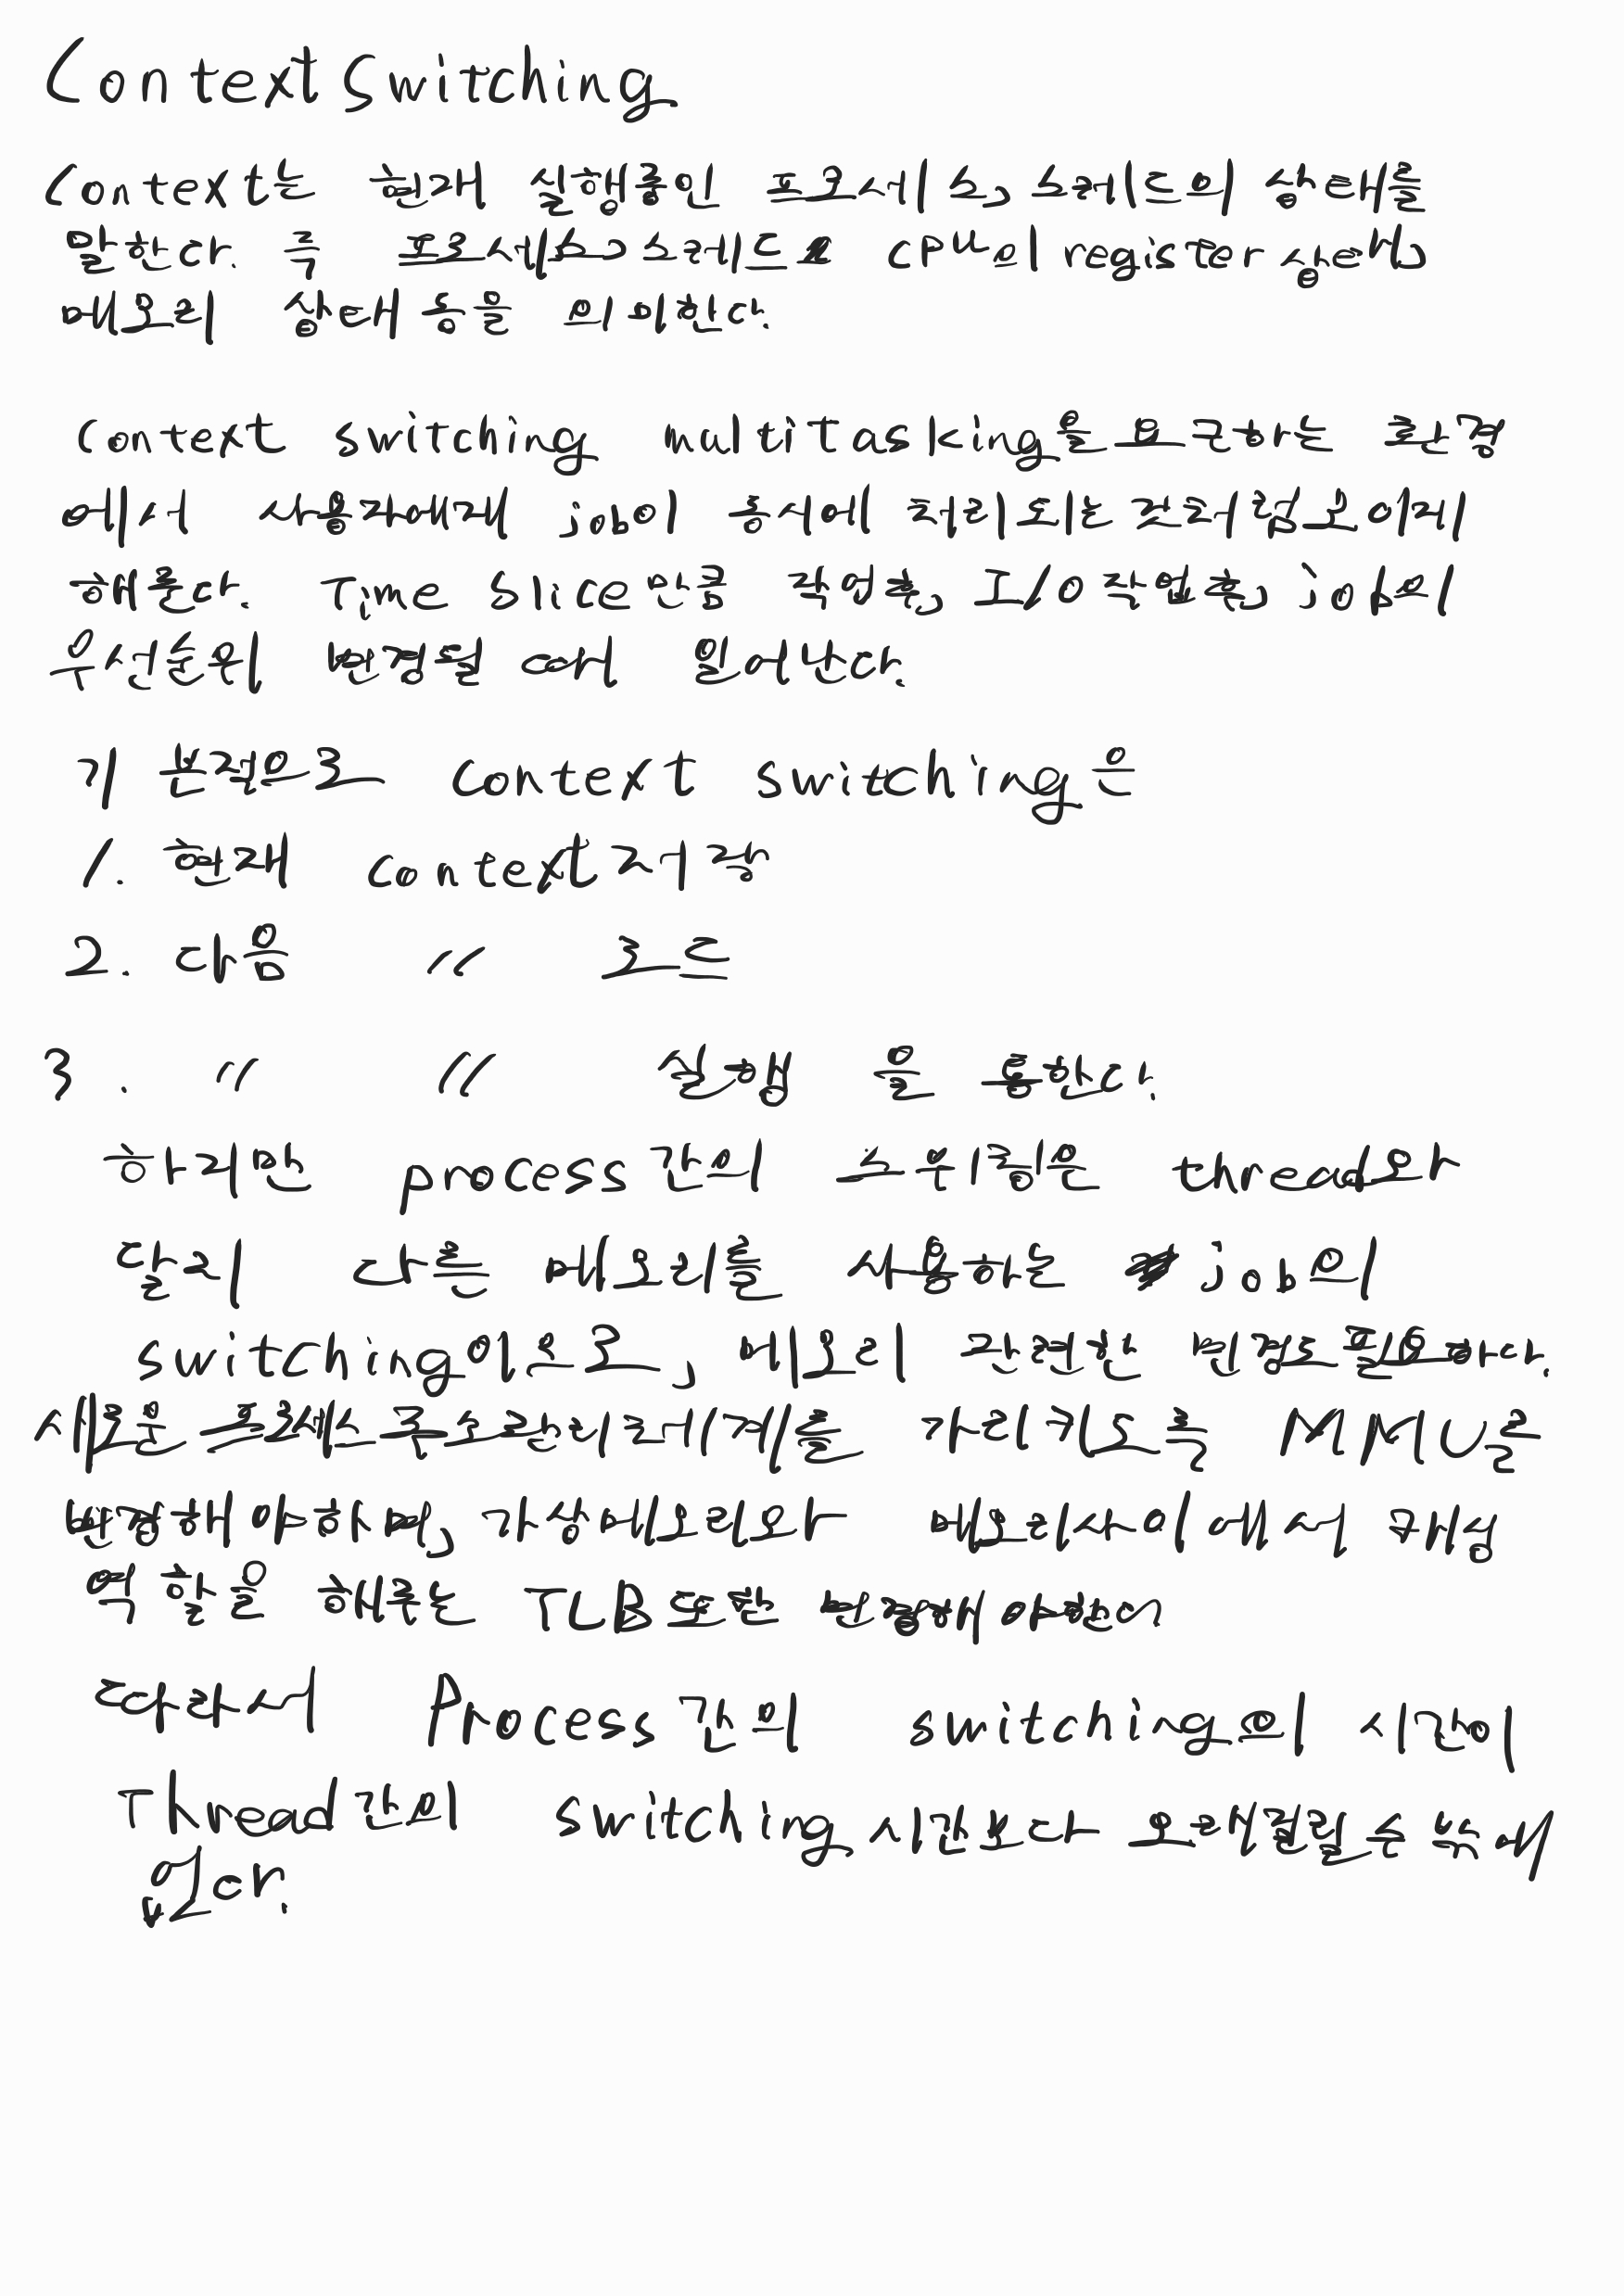 Context Switching
Context는 현재 실행중인 프로세스, 스레드의 상태를
말한다. 즉 프로세스, 스레드 CPU의 register 상태,
메모리 상태 등을 의미한다.
Context switching multitasking을 요구하는 환경
에서 사용자에게 job이 동시에 처리되는 것처럼 보이게
해준다. Time slice만큼 작업후, I/O 작업후, job의
우선순위 변경될 때 일어난다.
기본적으로 context switching은
1. 현재 context 저장
2. 다음 〃 로드
3. 〃 〃 실행 을 통한다.
하지만 process간의 스위칭은 thread와
달리 다른 메모리를 사용하는 job의
switching이므로, 메모리 관련한 변경도 필요하다.
새로운 프로세스 주소 가리키도록 MMU를
변경해야하며, 가상메모리와 메모리사이에서 캐싱
역할을 해주는 TLB또한 변경해야한다
따라서 Process간의 switching의 시간이
Thread간의 switching시간보다 오래걸릴수 밖에
없다.